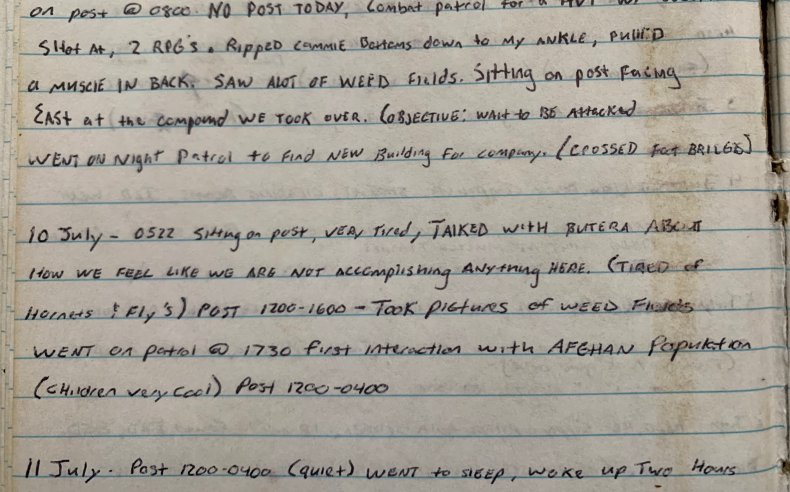 on post @ 0800. NO POST TODAY, Combat patrol for a HVT
SHot At, 2 RPG's. Ripped CAMMIE Bottoms down to my ANKLE, PULLED
a MUSCLE IN BACK. SAW ALOT OF WEED Fields. Sitting on post Facing
EAST at the compound WE TOOK OVER. (OBJECTIVE: WAIT to BE Attacked
WENT ON Night Patrol to find NEW Building For company. (CROSSED BRIDGE)
10 July - 0522 Sitting on post, VERY Tired, TALKED WITH BUTERA ABOUT
HOW WE FEEL LIKE WE ARE NOT ACCOMPlishing ANYthing HERE. (TIRED of
Hornets & Fly's) POST 1200-1600 - TOOK PICTURES of WEED Fields
WENT on patrol @ 1730 first interaction with AFGHAN Population
(CHildren very Cool) Post 1200-0400
11 July. Post 1200-0400 (quiet) WENT to SlEEP, woke up Two Hours